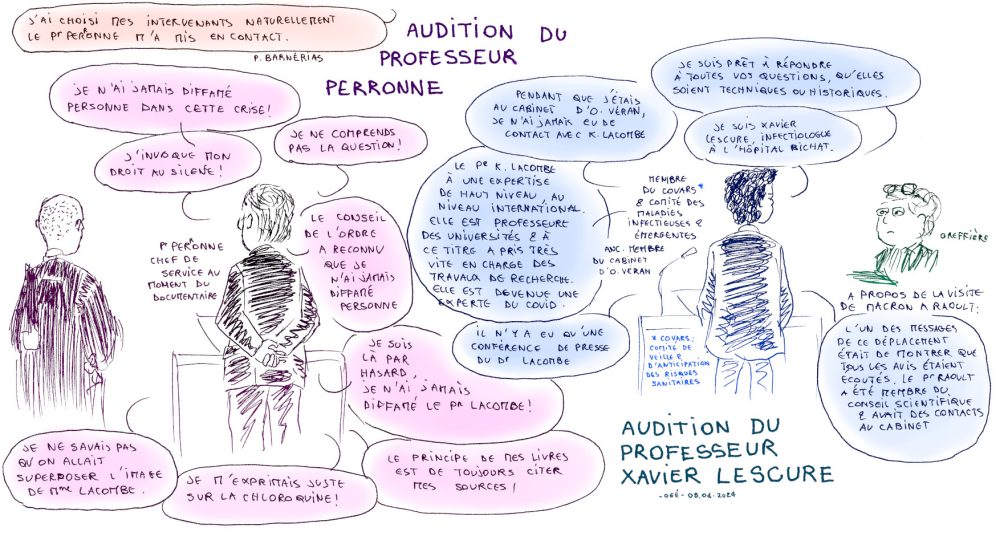 J'AI CHOISI MES INTERVENANTS NATURELLEMENT
LE Pr PERRONNE M'A MIS EN CONTACT.
P. BARNÉRIAS
AUDITION DU
PROFESSEUR
PERRONNE
JE N'AI JAMAIS DIFFAMÉ
PERSONNE DANS CETTE CRISE!
J'INVOQUE MON
DROIT AU SILENCE!
JE NE COMPRENDS
PAS LA QUESTION!
LE CONSEIL
DE L'ORDRE
A RECONNU
QUE JE
N'AI JAMAIS
DIFFAMÉ
PERSONNE
Pr PERRONNE
CHEF DE
SERVICE AU
MOMENT DU
DOCUMENTAIRE
JE SUIS
LÀ PAR
HASARD,
JE N'AI JAMAIS
DIFFAMÉ LE Pr LACOMBE!
JE NE SAVAIS PAS
QU'ON ALLAIT
SUPERPOSER L'IMAGE
DE Mme LACOMBE.
JE M'EXPRIMAIS JUSTE
SUR LA CHLOROQUINE!
LE PRINCIPE DE MES LIVRES
EST DE TOUJOURS CITER
MES SOURCES!
JE SUIS PRÊT À RÉPONDRE
À TOUTES VOS QUESTIONS, QU'ELLES
SOIENT TECHNIQUES OU HISTORIQUES.
PENDANT QUE J'ÉTAIS
AU CABINET D'O. VÉRAN,
JE N'AI JAMAIS EU DE
CONTACT AVEC K. LACOMBE
JE SUIS XAVIER
LESCURE, INFECTIOLOGUE
À L'HÔPITAL BICHAT.
LE Pr K. LACOMBE
À UNE EXPERTISE
DE HAUT NIVEAU, AU
NIVEAU INTERNATIONAL.
ELLE EST PROFESSEURE
DES UNIVERSITÉS & À
CE TITRE A PRIS TRÈS
VITE EN CHARGE DES
TRAVAUX DE RECHERCHE.
ELLE EST DEVENUE UNE
EXPERTE DU COVID.
MEMBRE
DU COVARS*
& COMITÉ DES
MALADIES
INFECTIEUSES &
ÉMERGENTES
ANC. MEMBRE
DU CABINET
D'O. VERAN
IL N'Y A EU QU'UNE
CONFÉRENCE DE PRESSE
DU Dr LACOMBE
* COVARS:
COMITÉ DE
VEILLE &
D'ANTICIPATION
DES RISQUES
SANITAIRES
GREFFIÈRE
A PROPOS DE LA VISITE
DE MACRON A RAOULT:
L'UN DES MESSAGES
DE CE DÉPLACEMENT
ÉTAIT DE MONTRER QUE
TOUS LES AVIS ÉTAIENT
ÉCOUTÉS. LE Pr RAOULT
A ÉTÉ MEMBRE DU
CONSEIL SCIENTIFIQUE
& AVAIT DES CONTACTS
AU CABINET
AUDITION DU
PROFESSEUR
XAVIER LESCURE
- OGÉ - 08.04.2024